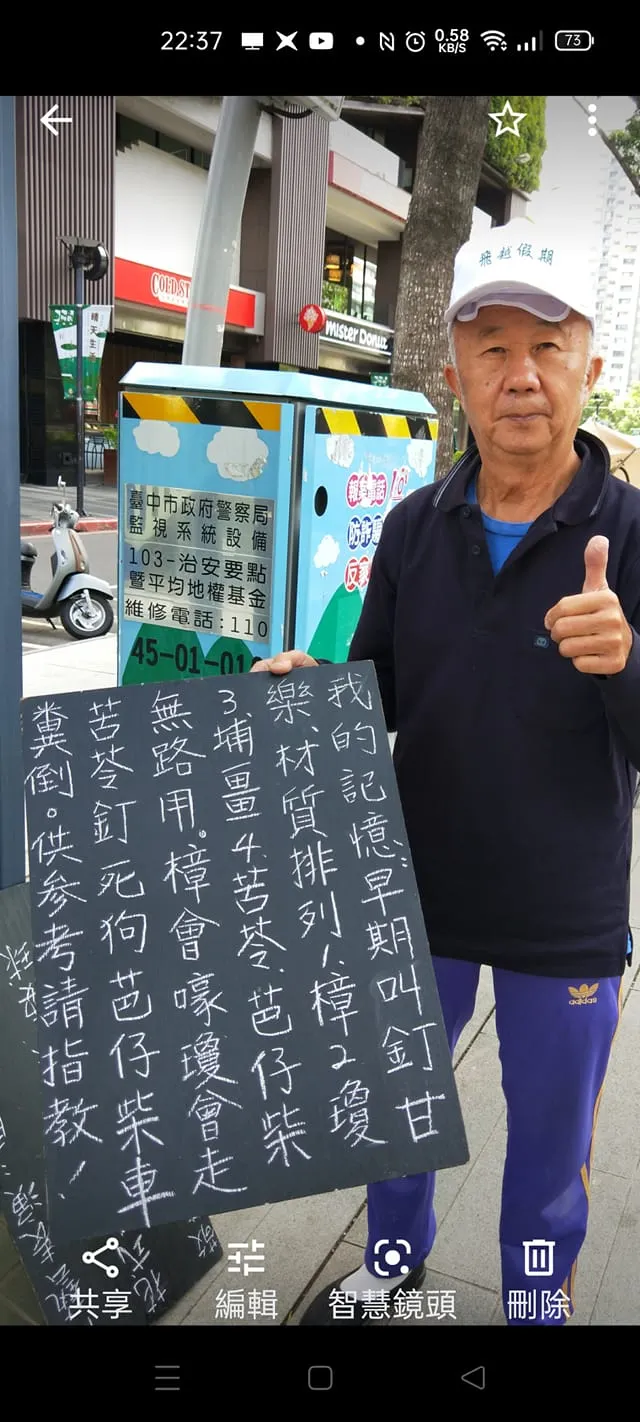 22:37
0.58
KB/S
73
飛越假期
COLD ST
Mister Donut
晴天生活
臺中市政府警察局
監視系統設備
103-治安要點
暨平均地權基金
維修電話:110
45-01-01
報案電話
防詐
我的記憶:早期叫釘甘
樂、材質排列1.樟2瓊
3.埔畺4.苦苓、芭仔柴
無路用。樟會嚎瓊會走
苦苓釘死狗芭仔柴車
糞倒。供參考請指教!
adidas
共享
編輯
智慧鏡頭
刪除